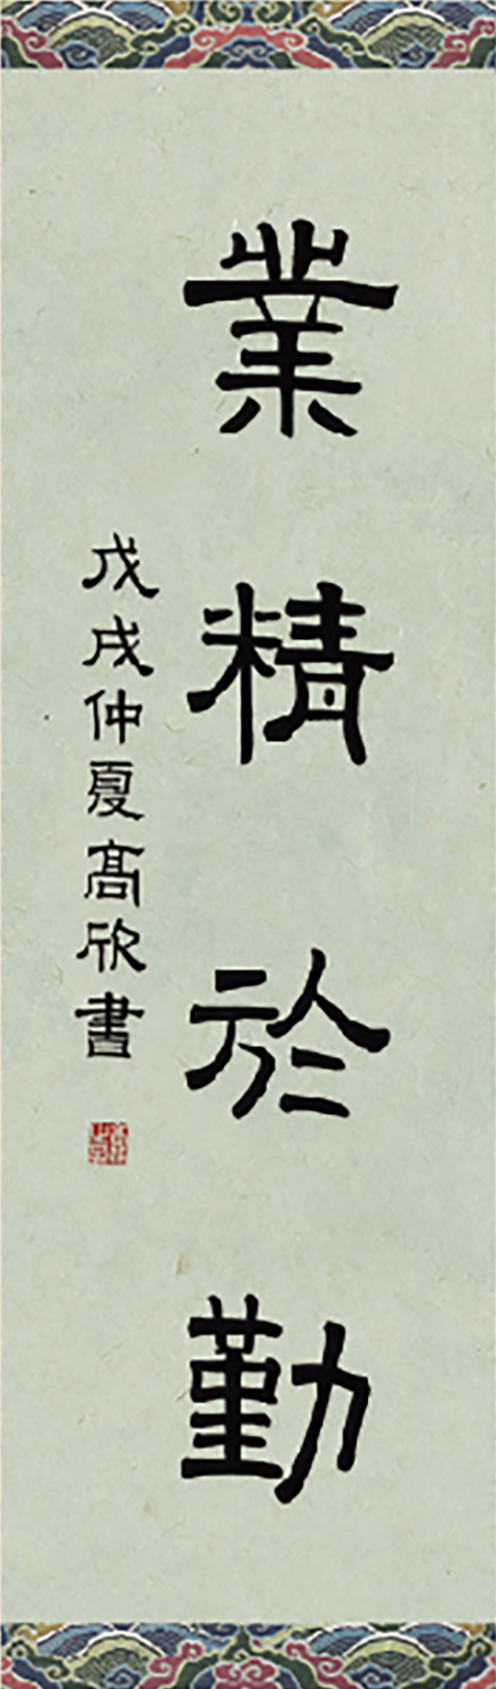 業精於勤
戊戌仲夏高欣書